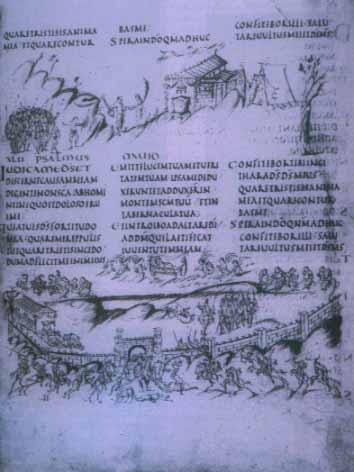 QUARETRISTISESANIMA
MEAETQUARECONTUR
BASME
SPERAINDOQMADHUC
CONFITEBORILLI SALU
TAREUULTUSMEIETDSMS
XLII PSALMUS
IUDICAMEDSET
DISCERNECAUSAMMEAM
DEGENTENONSCA ABHOMI
NEINIQUOETDOLOSOERI
PEME
QUIATUESDSFORTITUDO
MEA QUAREMEREPULIS
TIETQUARETRISTISINCEDO
DUMADFLIGITMEINIMICUS
EMITTELUCEMTUAMETUERI
TATEMTUAM
XERUNTETADDUXERUN
MONTEMSCMTUU ETIN
TABERNACULATUA
ETINTROIBOADALTAREDI
ADDMQUILAETIFICAT
IUUENTUTEMMEAM
CONFITEBORTIBIINCI
THARADSDSMEUS
QUARETRISTISESANIMA
MEAETQUARECONTUR
BASME
SPERAINDOQMADHUC
CONFITEBORILLI SALU
TAREUULTUSMEIETDSMS